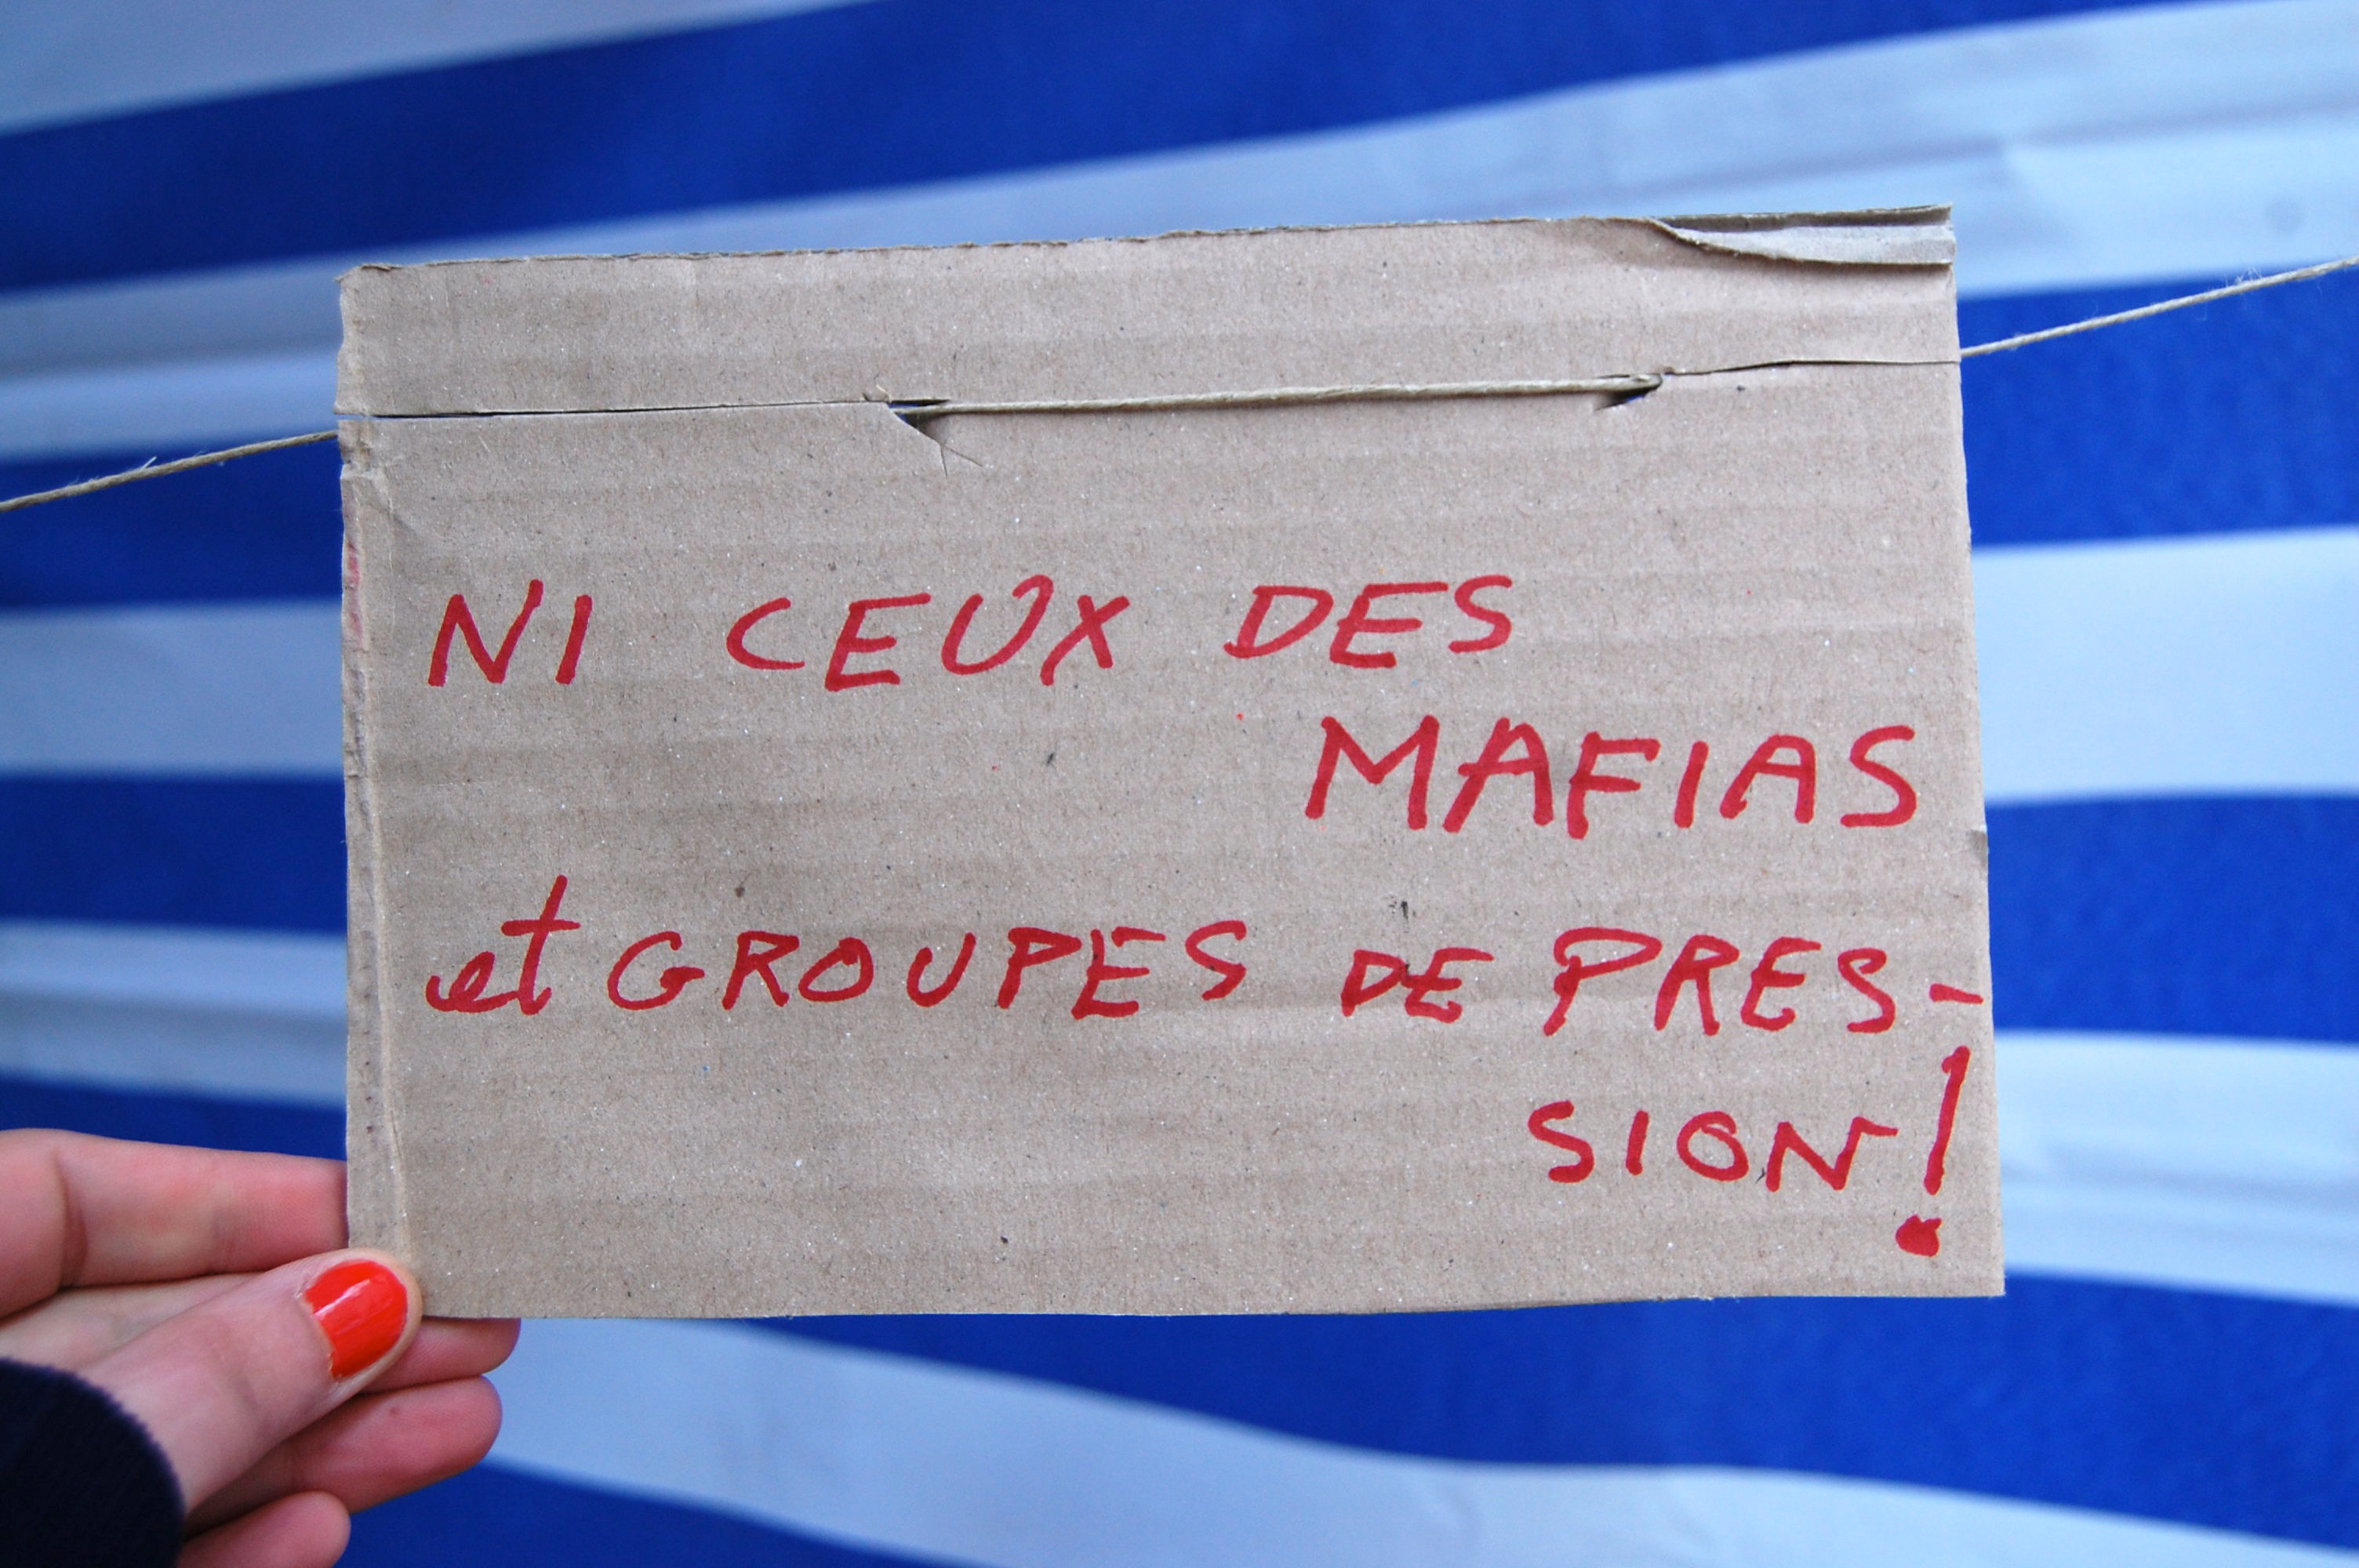 NI CEUX DES
MAFIAS
et GROUPES DE PRES-
SION!